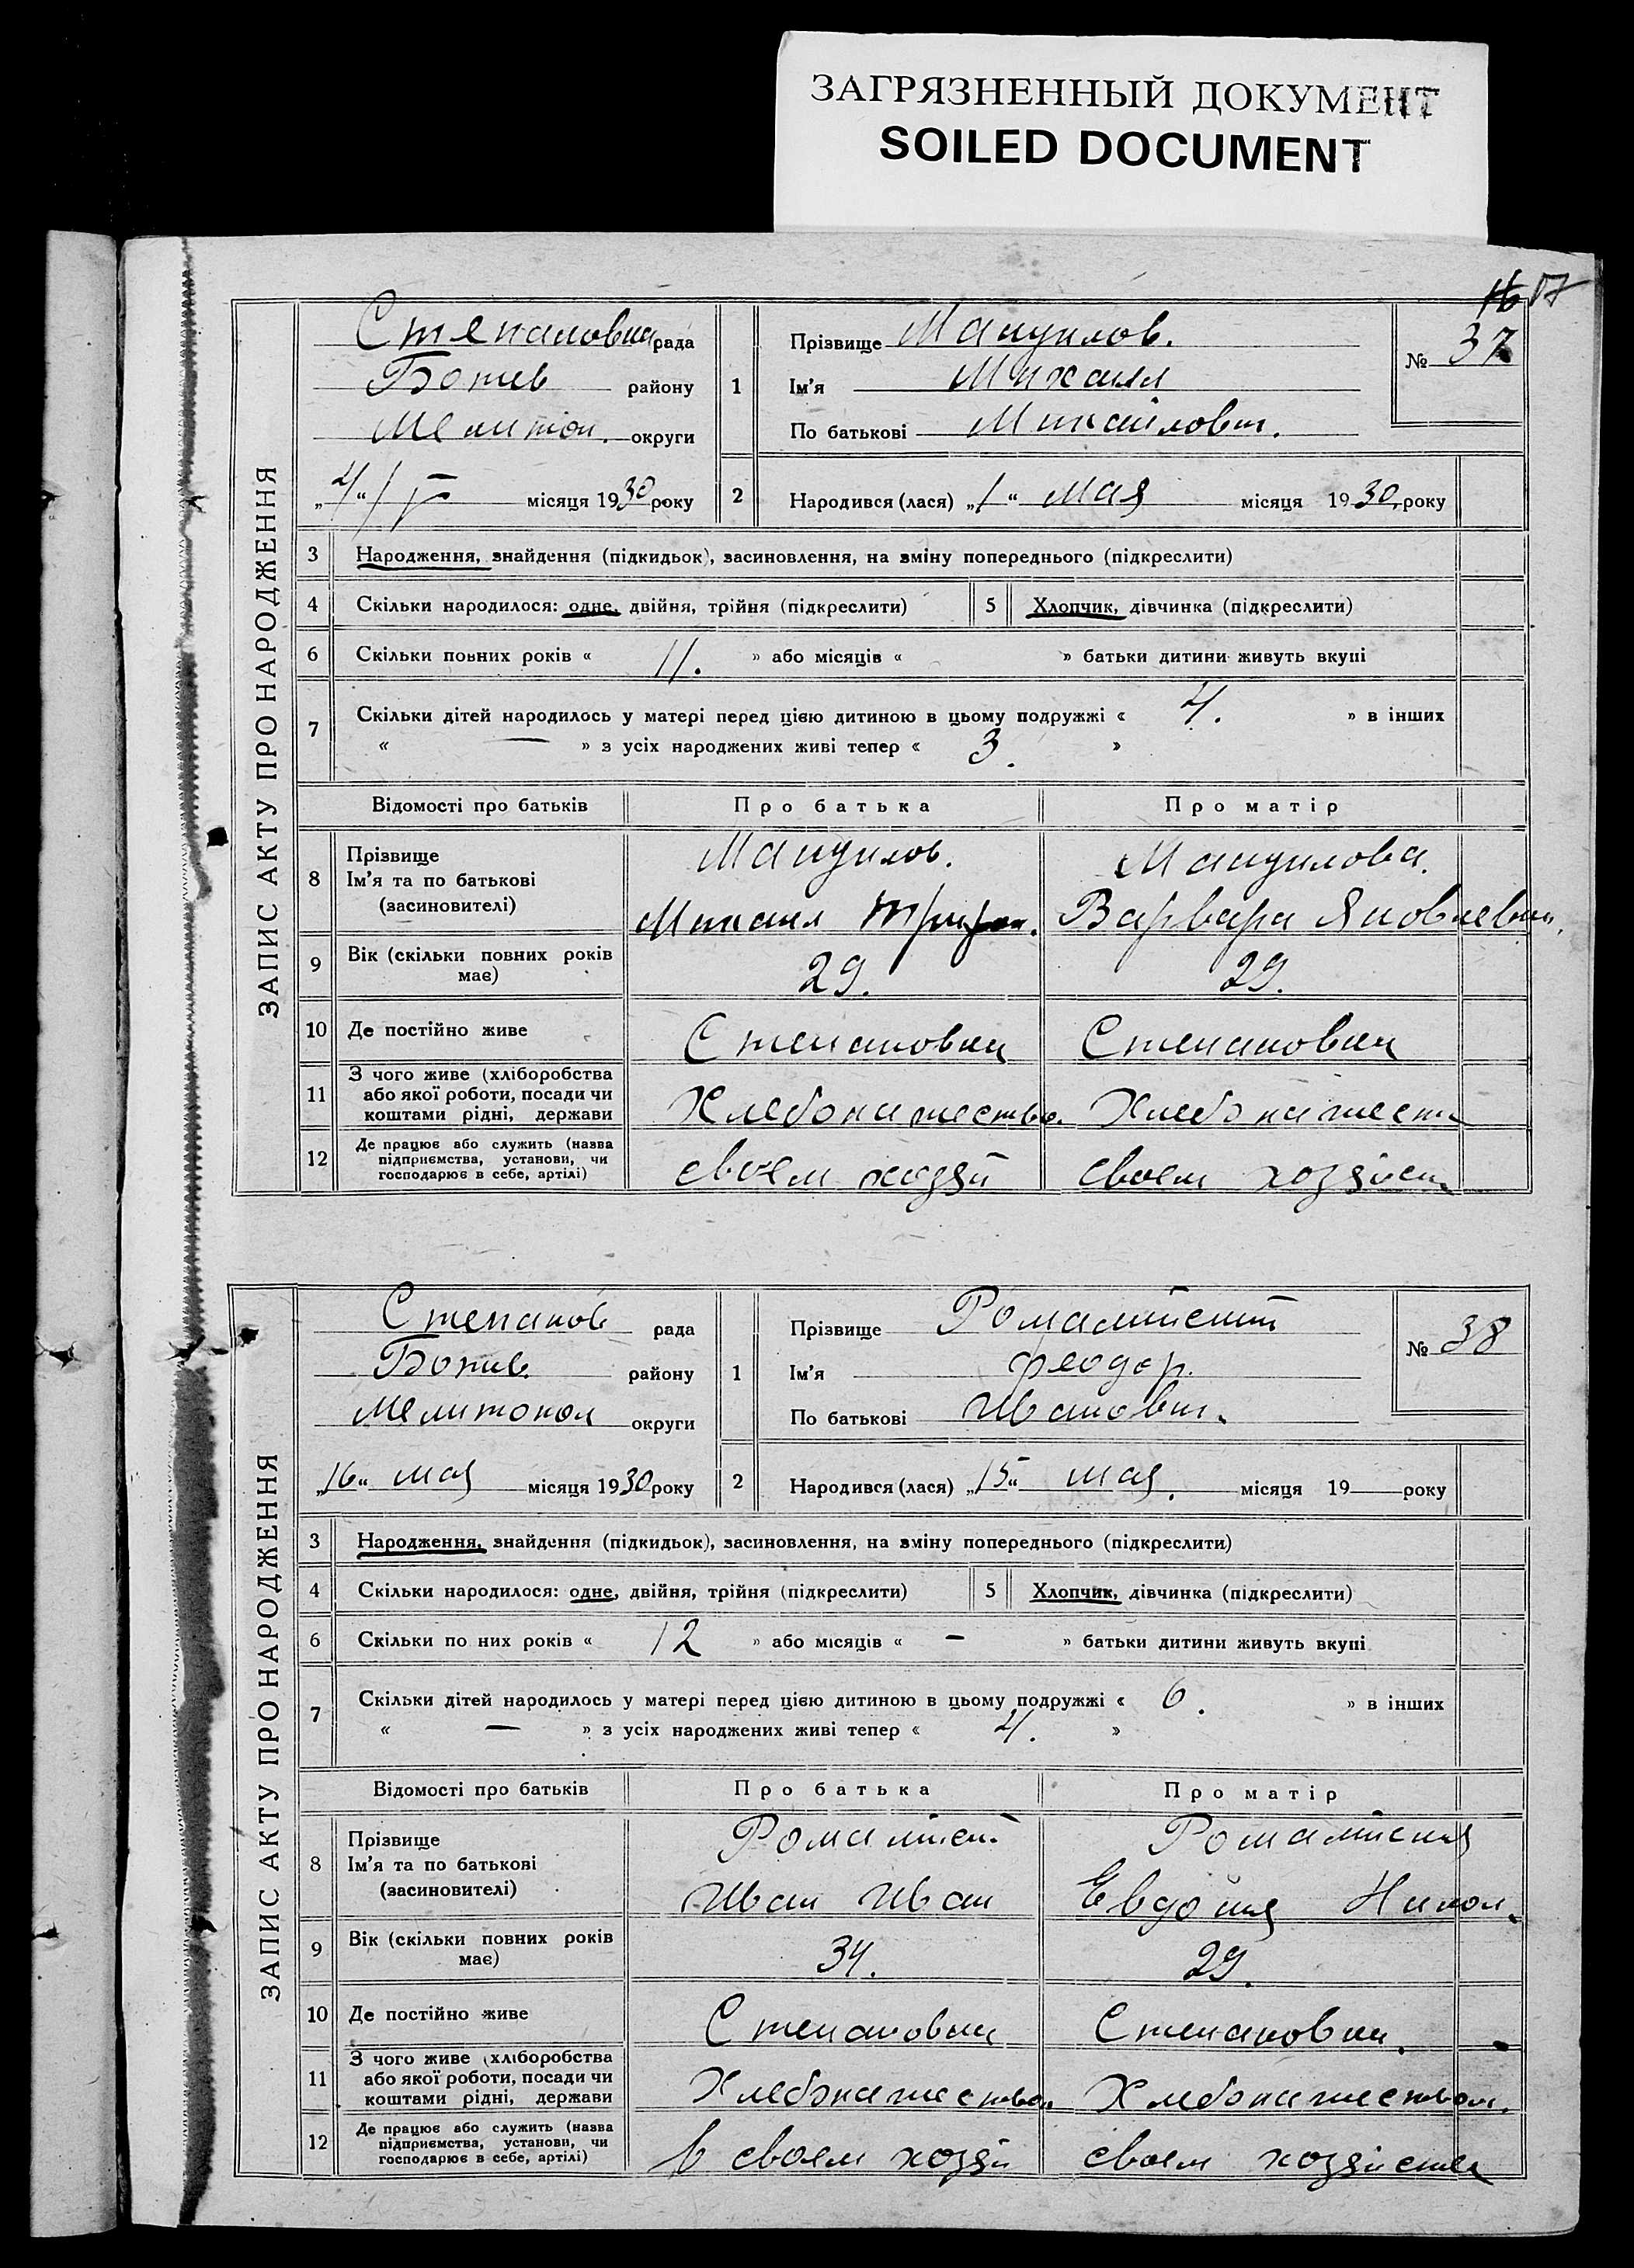 ЗАГРЯЗНЕННЫЙ ДОКУМЕНТ
SOILED DOCUMENT
16 17
ЗАПИС АКТУ ПРО НАРОДЖЕННЯ
Степановка рада
Ботиев району
Мелитоп. округи
„4“ / V місяця 1930 року
1 Прізвище Мануилов.
Ім’я Михаил
По батькові Михайлович.
№ 37
2 Народився (лася) „1“ мая місяця 1930, року
3 Народження, знайдення (підкидьок), засиновлення, на зміну попереднього (підкреслити)
4 Скільки народилося: одне, двійня, трійня (підкреслити) 5 Хлопчик, дівчинка (підкреслити)
6 Скільки повних років « 11. » або місяців « » батьки дитини живуть вкупі
7 Скільки дітей народилось у матері перед цією дитиною в цьому подружжі « 4. » в інших
« — » з усіх народжених живі тепер « 3. »
Відомості про батьків Про батька Про матір
8 Прізвище Ім’я та по батькові (засиновителі)
Мануилов. Мануилова.
Михаил Вapвара Яковлевна,
9 Вік (скільки повних років має) 29. 29.
10 Де постійно живе Степановка Степановка
11 З чого живе (хліборобства або якої роботи, посади чи коштами рідні, держави Хлебопашество. Хлебопашеств
12 Де працює або служить (назва підприємства, установи, чи господарює в себе, артілі) своем хозяй своем хозяйств
ЗАПИС АКТУ ПРО НАРОДЖЕННЯ
Степанов рада
Ботиев. району
Мелитопол округи
„16“ мая місяця 1930 року
1 Прізвище
Ім’я Феодор.
По батькові Иванович.
№ 38
2 Народився (лася) „15“ мая. місяця 19 року
3 Народження, знайдення (підкидьок), засиновлення, на зміну попереднього (підкреслити)
4 Скільки народилося: одне, двійня, трійня (підкреслити) 5 Хлопчик, дівчинка (підкреслити)
6 Скільки по них років « 12 » або місяців « — » батьки дитини живуть вкупі
7 Скільки дітей народилось у матері перед цією дитиною в цьому подружжі « 6. » в інших
« — » з усіх народжених живі тепер « 4. »
Відомості про батьків Про батька Про матір
8 Прізвище Ім’я та по батькові (засиновителі)
Иван Иван Евдокия Никол.
9 Вік (скільки повних років має) 34. 29.
10 Де постійно живе Степановка Степановка.
11 З чого живе (хліборобства або якої роботи, посади чи коштами рідні, держави Хлебопашеством Хлебопашеством.
12 Де працює або служить (назва підприємства, установи, чи господарює в себе, артілі) в своем хозяй своем хозяйстве